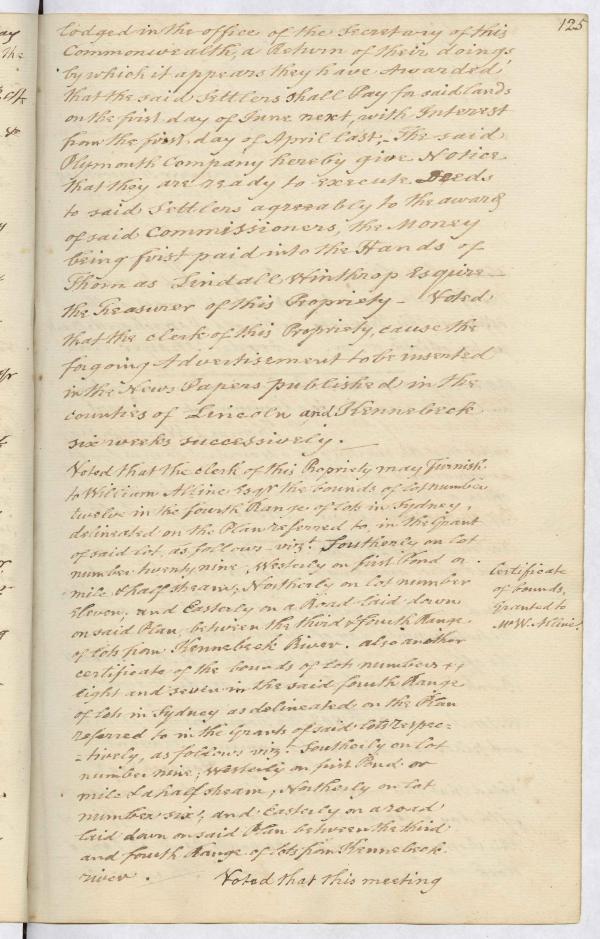 125
lodged in the office of the Secretary of this
Commonwealth, a Return of their doings
by which it appears they have Awarded
that the said Settlers shall Pay for said lands
on the first day of June next, with Interest
from the first day of April last, The said
Plymouth Company hereby give Notice
that they are ready to execute Deeds
to said Settlers agreeably to the award
of said Commissioners, the Money
being first paid into the Hands of
Thomas Lindall Winthrop Esquire
the Treasurer of this Propriety - Voted
that the clerk of this Propriety, cause the
forgoing Advertisement to be inserted
in the News Papers published in the
counties of Lincoln and Kennebeck
six weeks successively.
Voted that the clerk of this Propriety may furnish
to William Alline Esqr the bounds of lot number
twelve in the fourth Range of lots in Sydney,
delineated on the Plan referred to, in the Grant
of said lot, as follows vizt. Southerly on lot
number twenty nine, Westerly on first Pond or
mile & half stream; Northerly on lot number
Eleven, and Easterly on a Road laid down
on said Plan, between the third & fourth Range
of lots from Kennebeck River. also another
certificate of the bounds of lots numbers
Eight and seven in the said fourth Range
of lots in Sydney as delineated on the Plan
referred to in the Grants of said lots respec=
=tively, as follows vizt. Southerly on lot
number nine; Westerly on first Pond or
mile & a half stream; Northerly on lot
number six; and Easterly on a road
laid down on said Plan between the third
and fourth Range of lots from Kennebeck
river. Voted that this meeting
Certificate
of bounds,
granted to
Mr W. Alline.